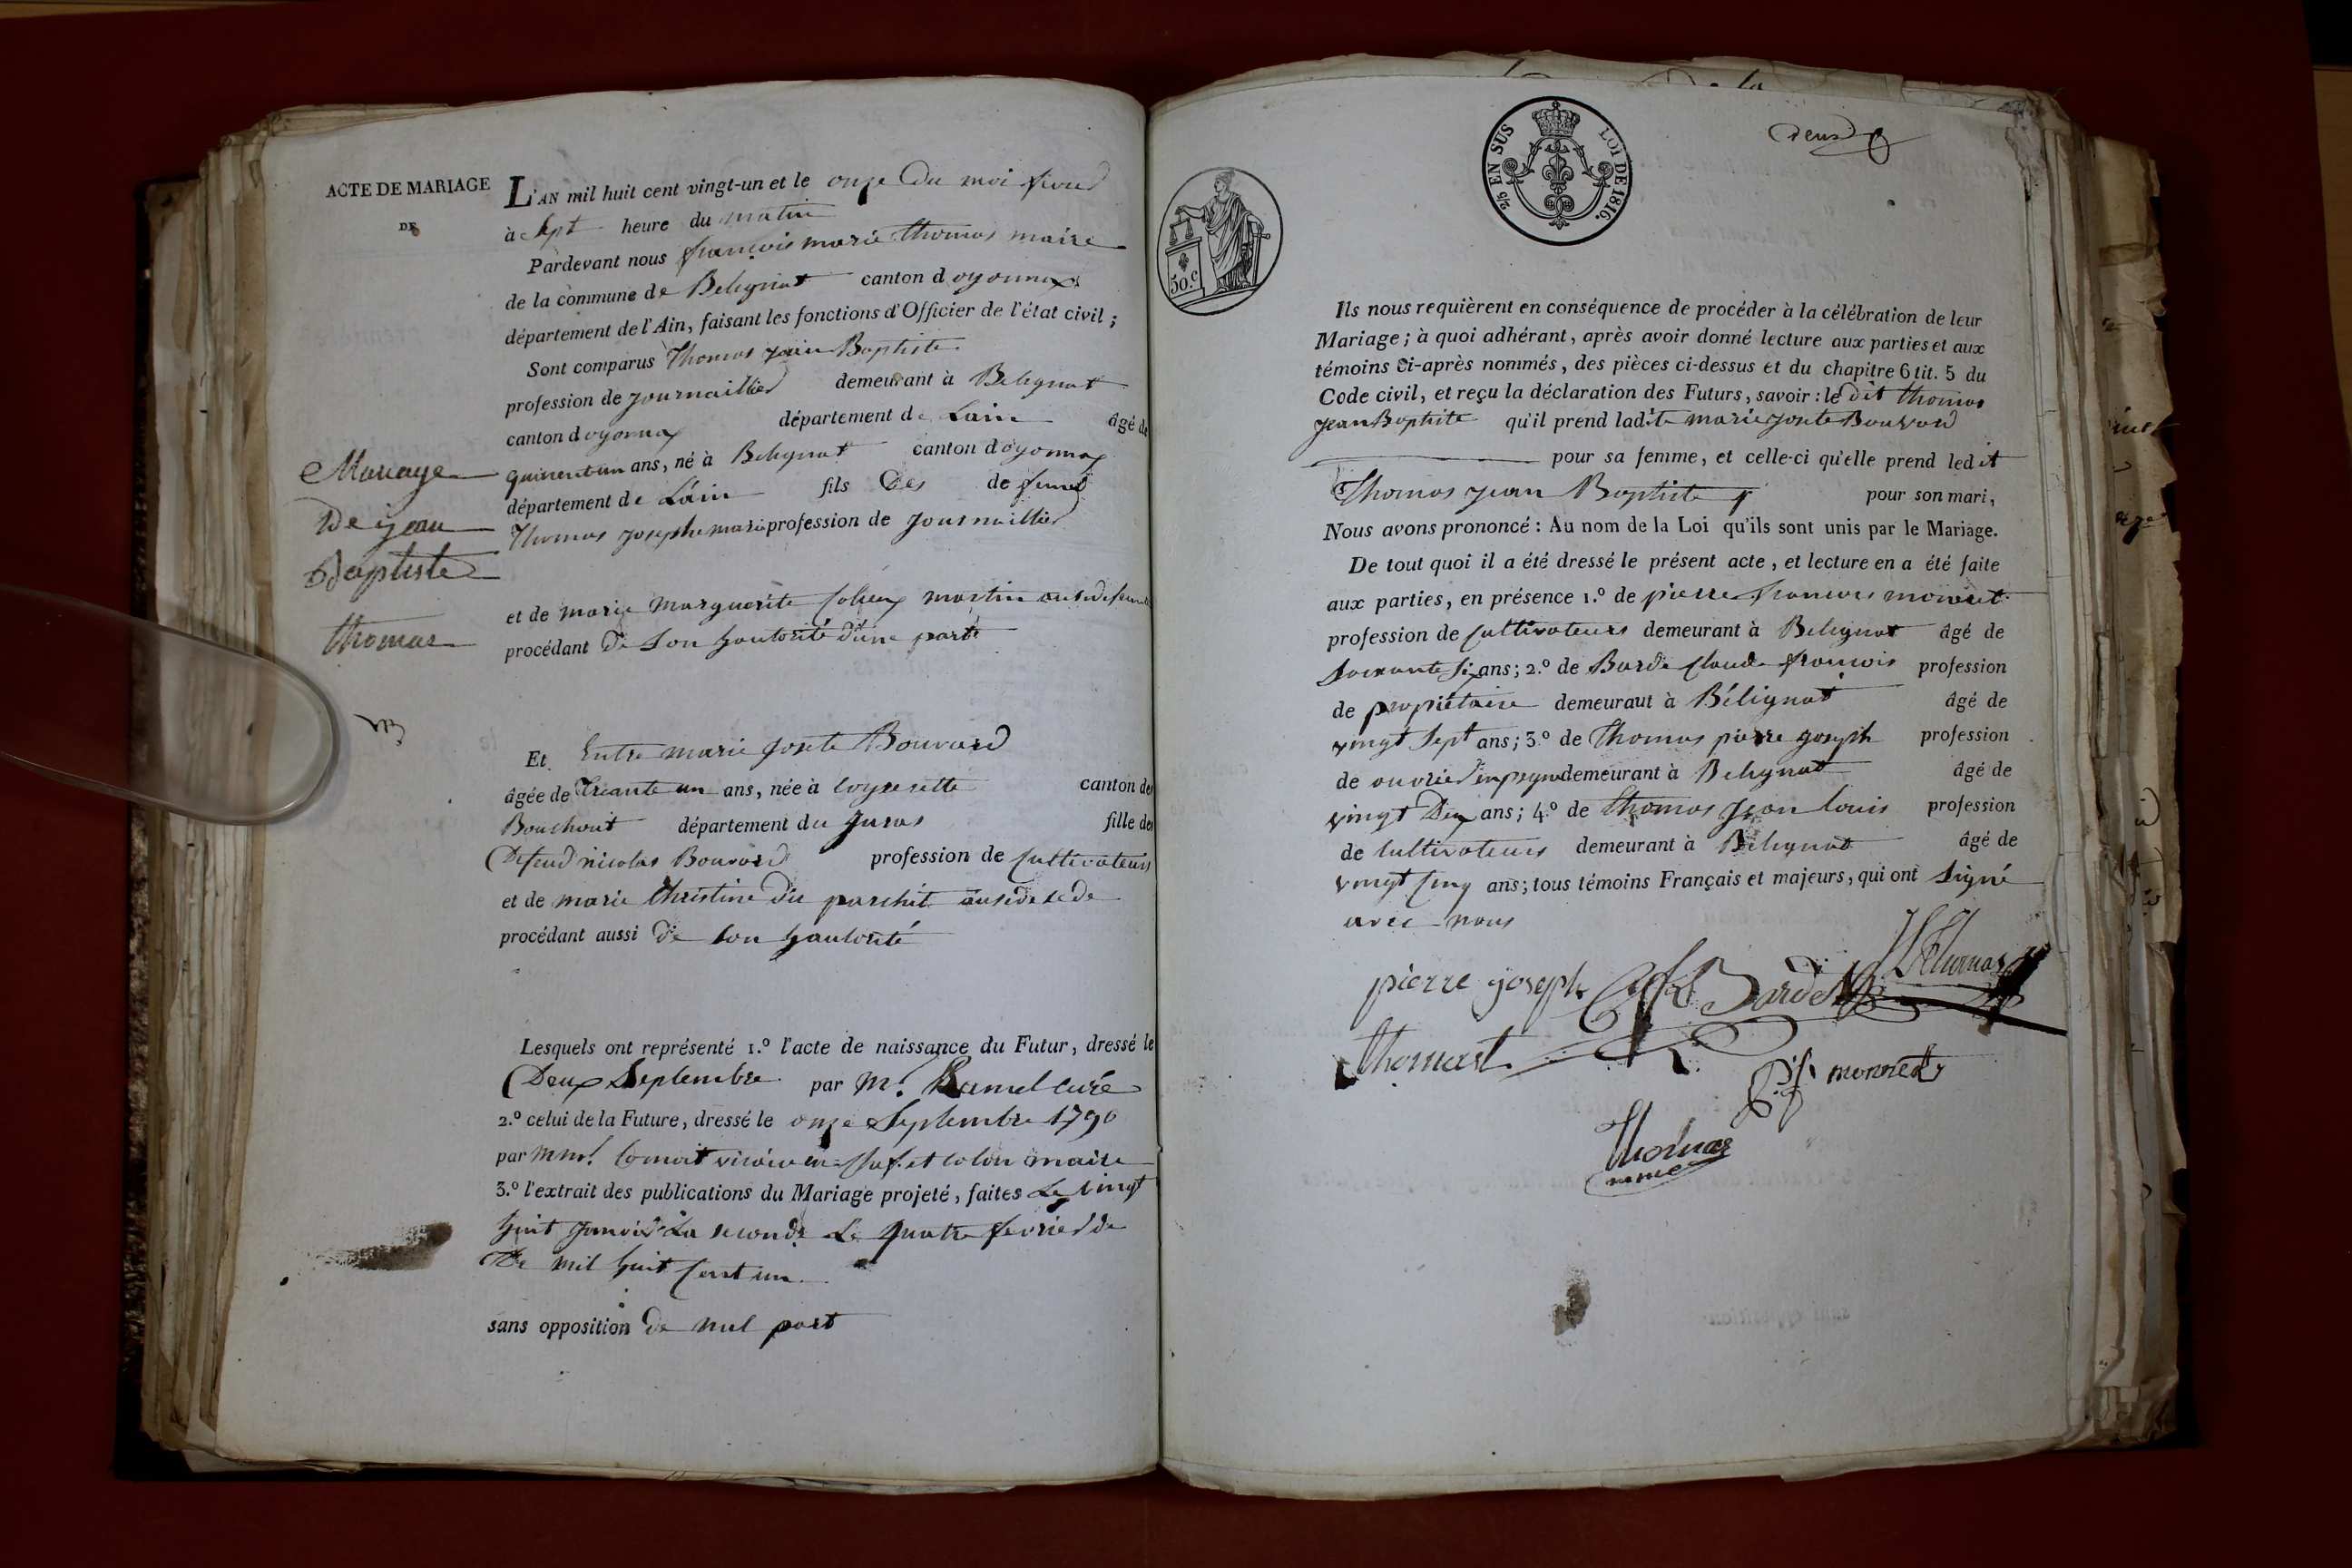 ACTE DE MARIAGE
DE
Mariage
De jean
Baptiste
thomas
L'AN mil huit cent vingt-un et le onze du moi
à Sept heure du matin
Pardevant nous françois marie thomas maire
de la commune de Belignat canton d oyonnax
département de l'Ain, faisant les fonctions d'Officier de l'état civil ;
Sont comparus Thomas jean Baptiste
profession de journaillier demeurant à Belignat
canton d oyonnax département de Lain âgé de
ans, né à Belignat canton d oyonnax
département de Láin fils Des de funt
Thomas josephe marie profession de journaillier
et de marie marguerite martin
procédant de son hautorité d'une parte
Et Entre marie joste Bouvard
âgée de treante un ans, née à Coyserette canton des
Bouchout département du juras fille des
Defeud nicolas Bouvard profession de cultivateurs
et de marie Christine
procédant aussi de son hautorité
Lesquels ont représenté 1.º l'acte de naissance du Futur, dressé le
Deux Septembre par Mr. Ramel curé
2.º celui de la Future, dressé le onze Septembre 1790
par et colin maire
3.º l'extrait des publications du Mariage projeté, faites Le vingt
huit janvier La seconde Le quatre fevrier de
De mil huit cent un
sans opposition de nul part
deux
2/5 EN SUS LOI DE 1816.
50.c
Ils nous requièrent en conséquence de procéder à la célébration de leur
Mariage ; à quoi adhérant, après avoir donné lecture aux parties et aux
témoins ci-après nommés, des pièces ci-dessus et du chapitre 6 tit. 5 du
Code civil, et reçu la déclaration des Futurs, savoir : le dit thomas
jean Baptiste qu'il prend ladite marie joste Bouvard
pour sa femme, et celle-ci qu'elle prend ledit
Thomas jean Baptiste pour son mari,
Nous avons prononcé : Au nom de la Loi qu'ils sont unis par le Mariage.
De tout quoi il a été dressé le présent acte, et lecture en a été faite
aux parties, en présence 1.º de pierre francois monnet
profession de cultivateurs demeurant à Belignat âgé de
soixante six ans ; 2.º de Barde claude francois profession
de propriétaire demeuraut à Bélignat âgé de
vingt Sept ans ; 3.º de Thomas pierre joseph profession
de ouvrier demeurant à Belignat âgé de
vingt Dix ans ; 4.º de thomas jean louis profession
de Cultivateurs demeurant à Belignat âgé de
vingt cinq ans ; tous témoins Français et majeurs, qui ont signé
avec nous
pierre joseph Barde Thomas
thomast
monnet
Thomas
maire